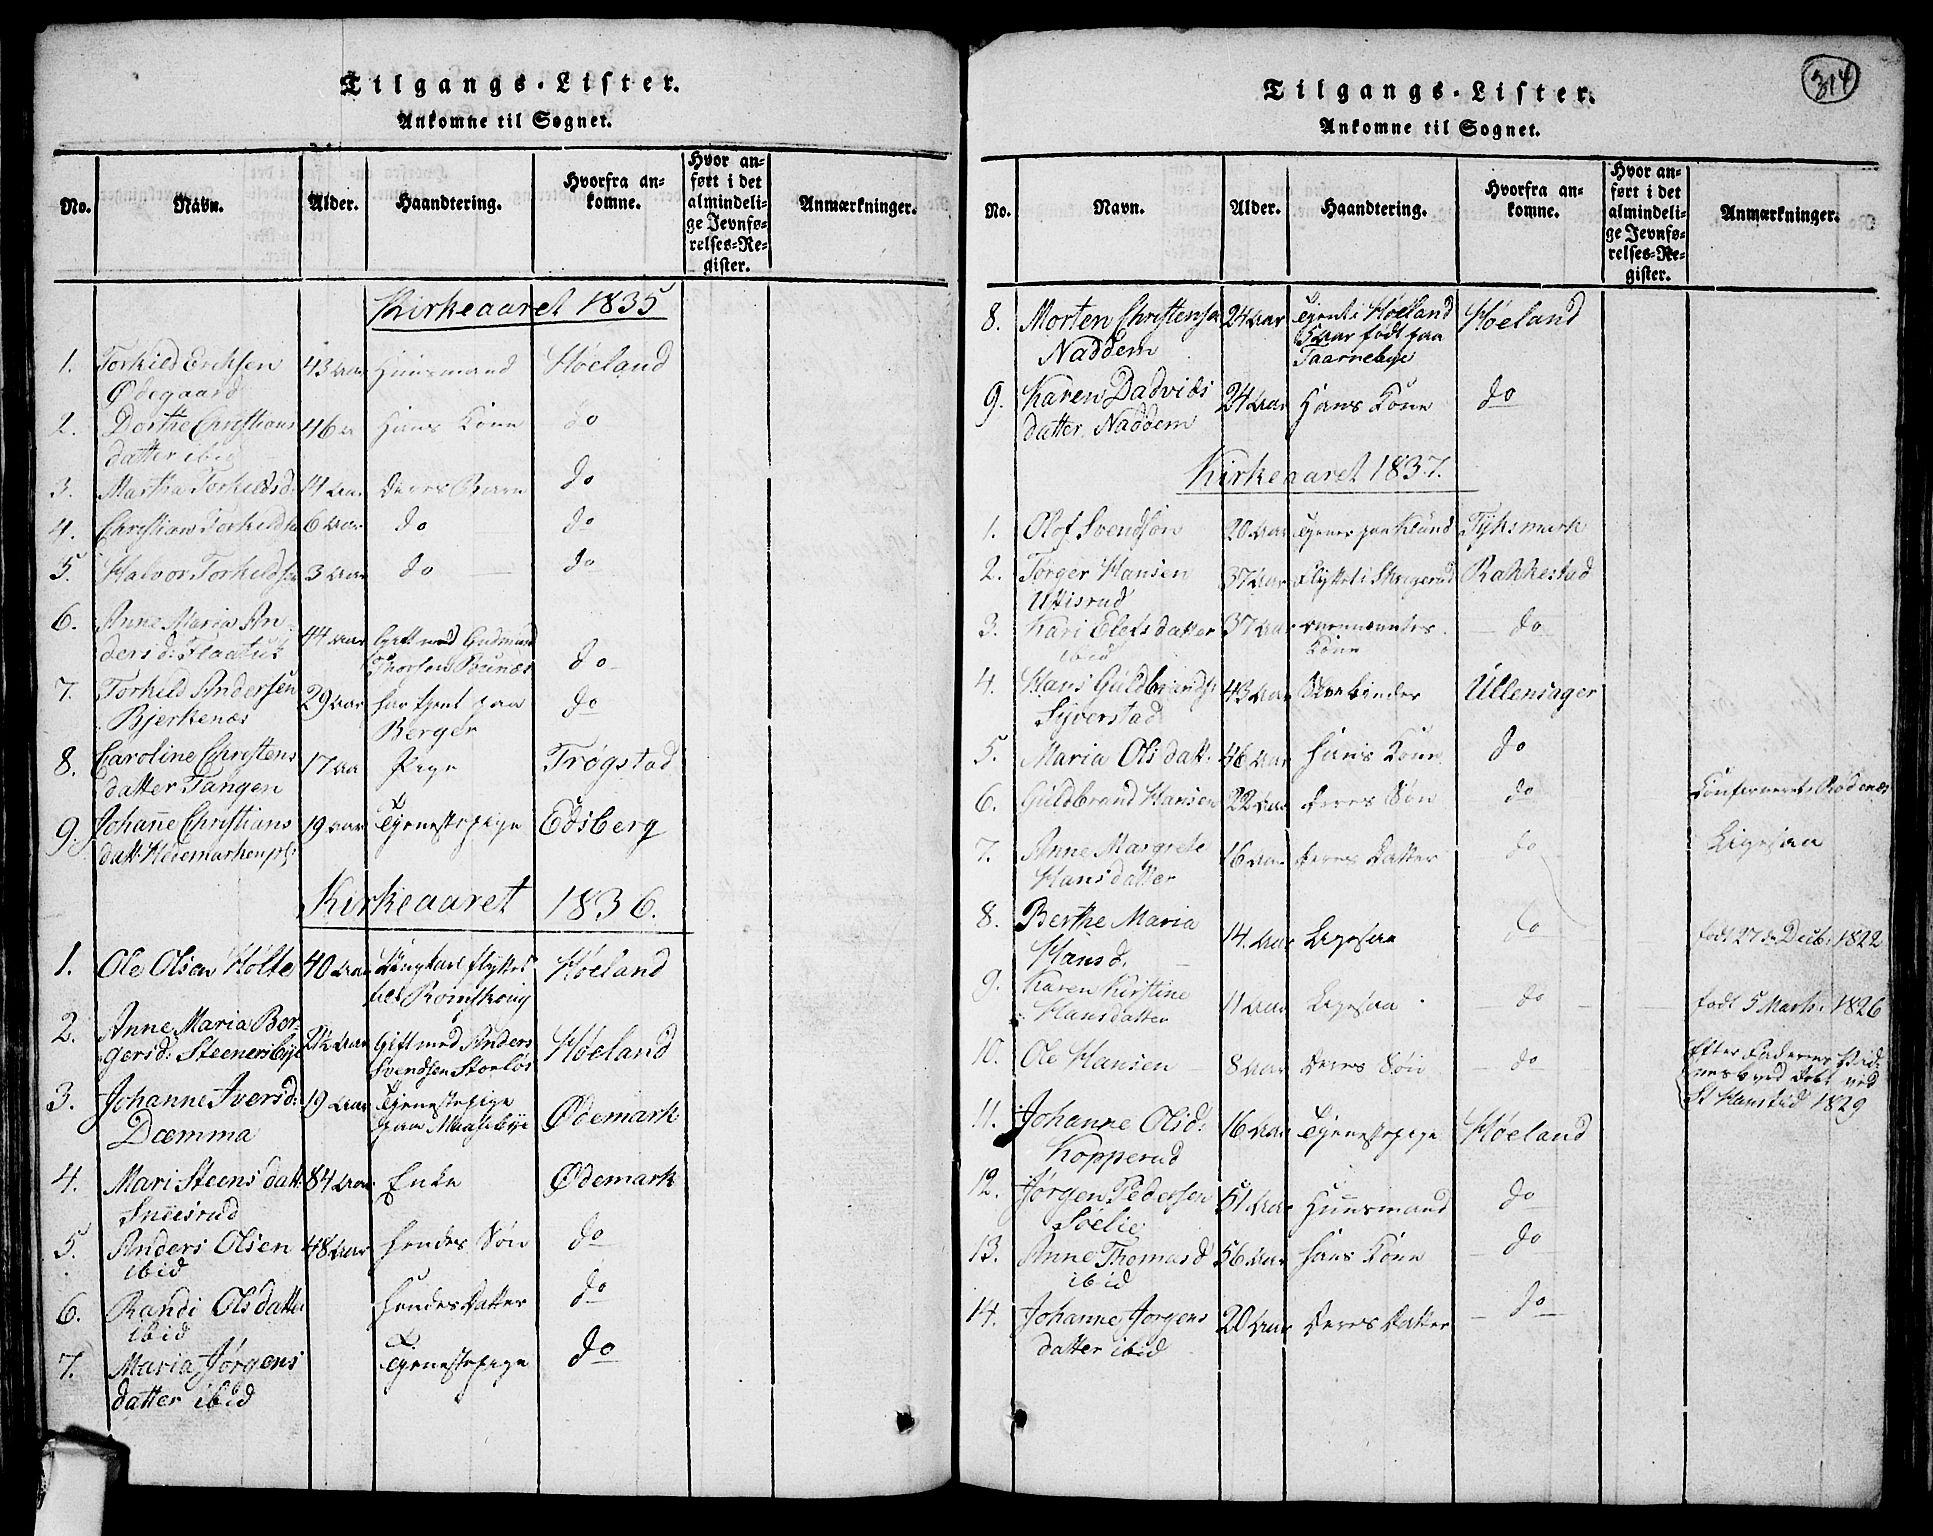 Tilgangs-Lister.
Ankomne til Sognet.
No. Navn. Alder. Haandtering. Hvorfra ankomne. Hvor anført i det almindelige Jevnførelses-Register. Anmærkninger.
Kirkeaaret 1835
1. Torkild Eriksen 43 Aar Huusmand Høeland
Ødegaard
2. Dorthe Christians 46 Hans Kone do
datter ibid
3. Martha Torkildsd. Deres Barn do
4. Christian Torkilds 6 Aar do do
5. Halvor Torkilds 3 Aar do do
6. Anne Maria An-
dersd: Flaatus 44 Aar Gift med Gudmund
Thorsen Bounæs do
7. Torkild Andersen 29 Aar har tjent paa do
Bjerkenæs Berger
8. Caroline Christens 17 Aa Pige Trøgstad
datter Tangen
9. Johane Christians 19 Aar Tjenestepige Edsberg
datt: Hedemarken pl:
Kirkeaaret 1836.
1. Ole Olsen Holte 40 Aar Ungkarl flyttet Høeland
til Romskoug
2. Anne Maria Bor-
gersd: Steenersbye Aar Gift med Anders Høeland
Svendsen Storløs
3. Johanne Iversd: 19 Aar Tjenestepige Ødemark
Dæmma paa
4. Mari Steensdatt: 84 Aar Enke Ødemark
Sneesrud
5. Anders Olsen 48 Aar hendes Søn do
ibid
6. Randi Olsdatter hendes Datter do
ibid
7. Maria Jørgens Tjenestepige do
datter ibid
314
Tilgangs-Lister.
Ankomne til Sognet.
No. Navn. Alder. Haandtering. Hvorfra ankomne. Hvor anført i det almindelige Jevnførelses-Register. Anmærkninger.
8. Morten Christensen 24 Aar Tjent i Høeland Høeland
Naddem Aar født paa
Taarnebye
9. Karen Dadvids 24 Aar Hans Kone do
datter Naddem
Kirkeaaret 1837.
1. Olof Svendson 20 Aar Tjener paa Klund
2. Torger Hansen 37 Aar Flyttet i Rakkestad
Utisrud
3. Kari Elefsdatter 37 Aar do
ibid Kone
4. Hans Guldbrands: 43 Aar Ullensager
Syverstad
5. Maria Olsdatt. 46 Aar Hans Kone do
6. Guldbrand Hansen 22 Aar Deres Søn do Confirmeret i Rødenæs
7. Anne Margrete 16 Aar Deres Datter do Ligesaa
Hansdatter
8. Berthe Maria 14 Aar Ligesaa do født 27de Decb: 1822
Hansd.
9. Karen Kirstine 11 Aar Ligesaa do født 5 Marts 1826
Hansdatter
10. Ole Hansen 8 Aar Deres Søn do Efter Faderens Vid-
nesbyrd født ved
St Hanstid 1829
11. Johanne Olsd: 16 Aar Tjenestepige Høeland
Kopperud
12. Jørgen Pedersen 51 Aar Huusmand do
Søelie
13. Anne Thomasd 56 Aar Hans Kone do
ibid
14. Johanne Jørgens 20 Aar Deres Datter do
datter ibid